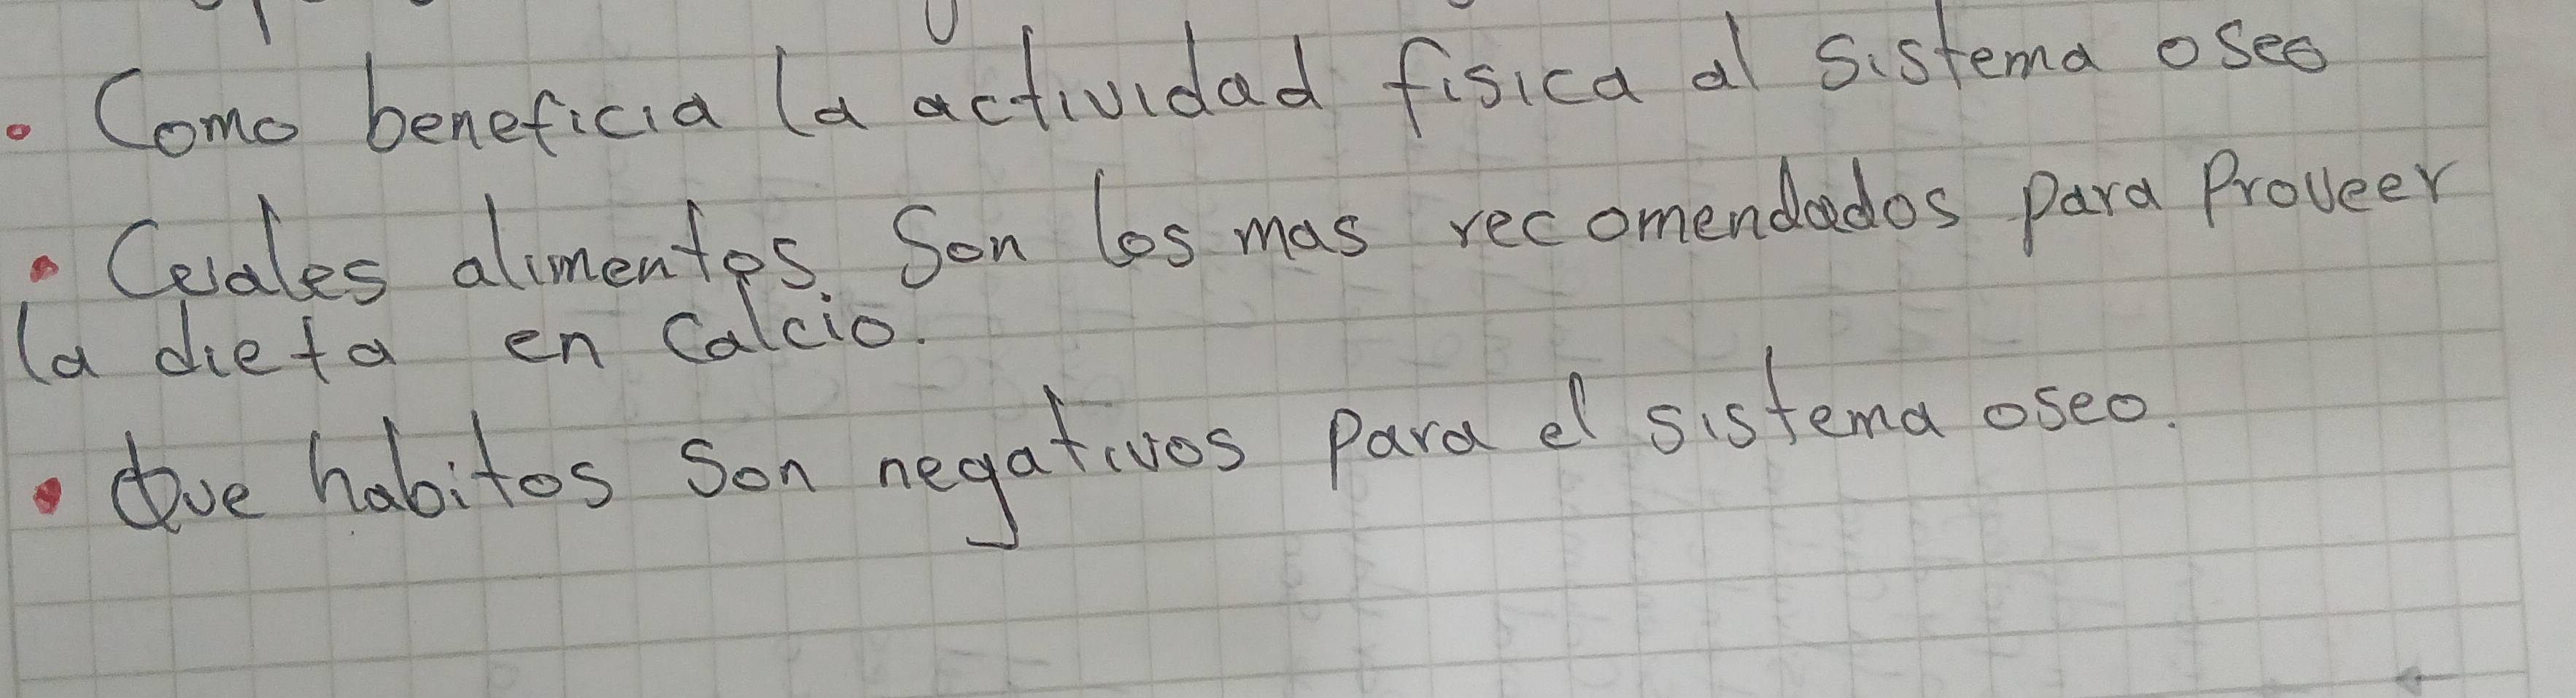 • Como beneficia la actividad fisica al sistema oseo
• Cuales alimentos. Son los mas recomendados para Proveer
la dieta en Calcio.
• Que habitos Son negativos para el sistema oseo.